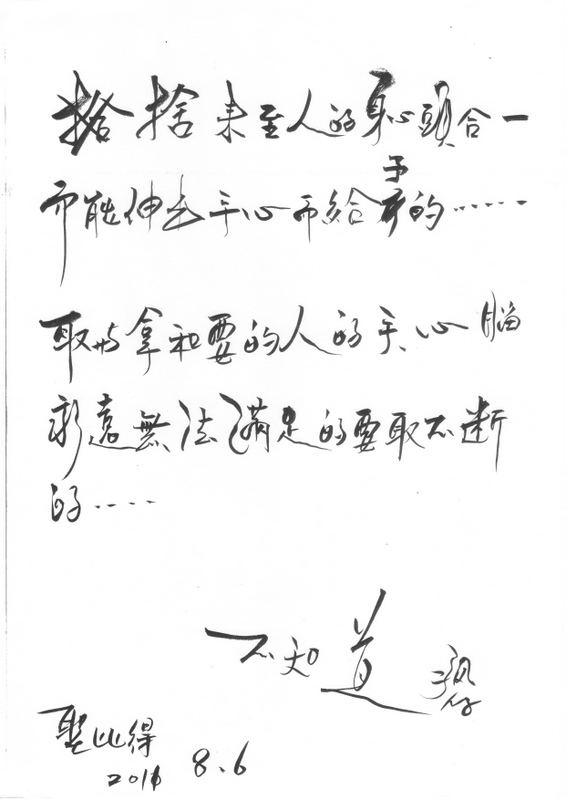 捨捨未至人的身心頭合一
而能伸出手心而給予的……
取與拿和要的人的手、心腦
永遠無法滿足的要取不断
的……
不知道
聖比得
2016 8.6